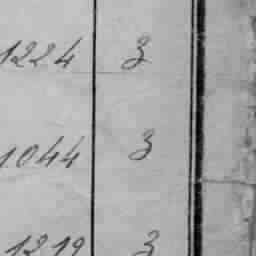 1224 3
1044 3
1219 3